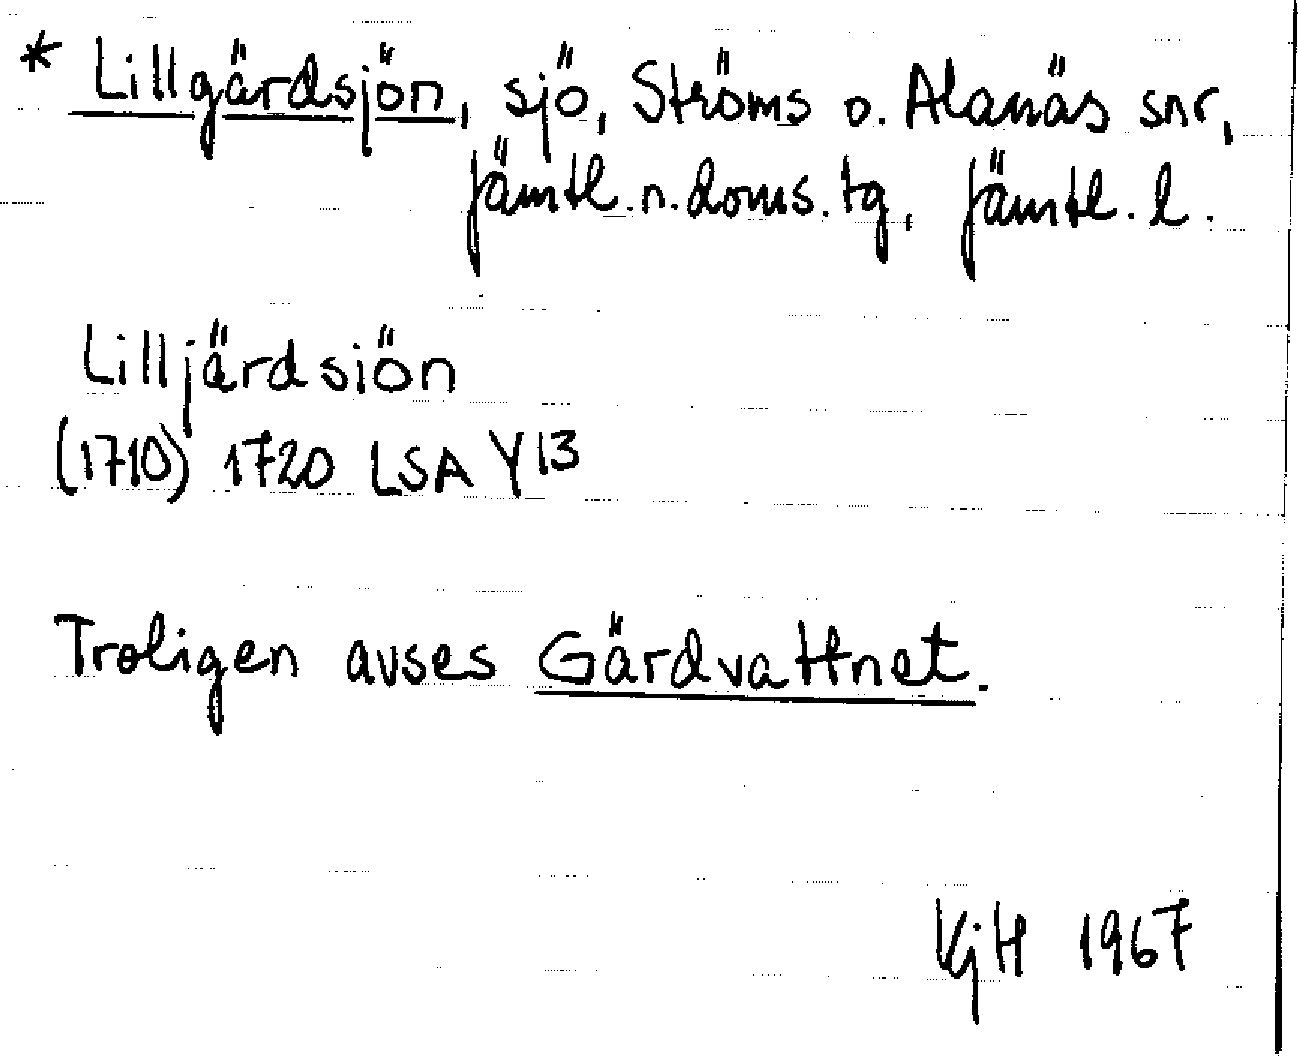 * Lillgärdsjön, sjö, Ströms o. Alanäs snr,
Jämtl. n. doms. tg, Jämtl. l.
Lilljärdsiön
(1710) 1720 LSA Y13
Troligen avses Gärdvattnet.
KjH 1967